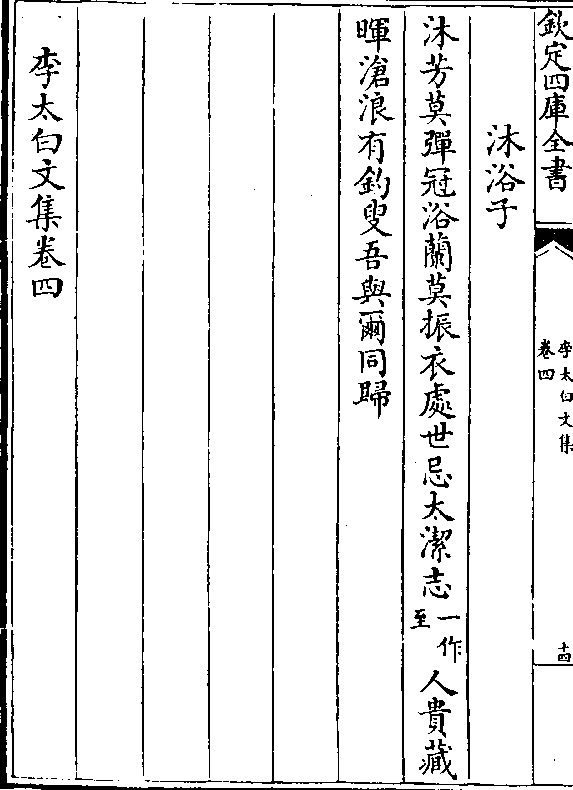 欽定四庫全書
李太白文集
卷四
十四
沐浴子
沐芳莫彈冠浴蘭莫振衣處世忌太潔志一作至人貴藏
暉滄浪有釣叟吾與爾同歸
李太白文集卷四